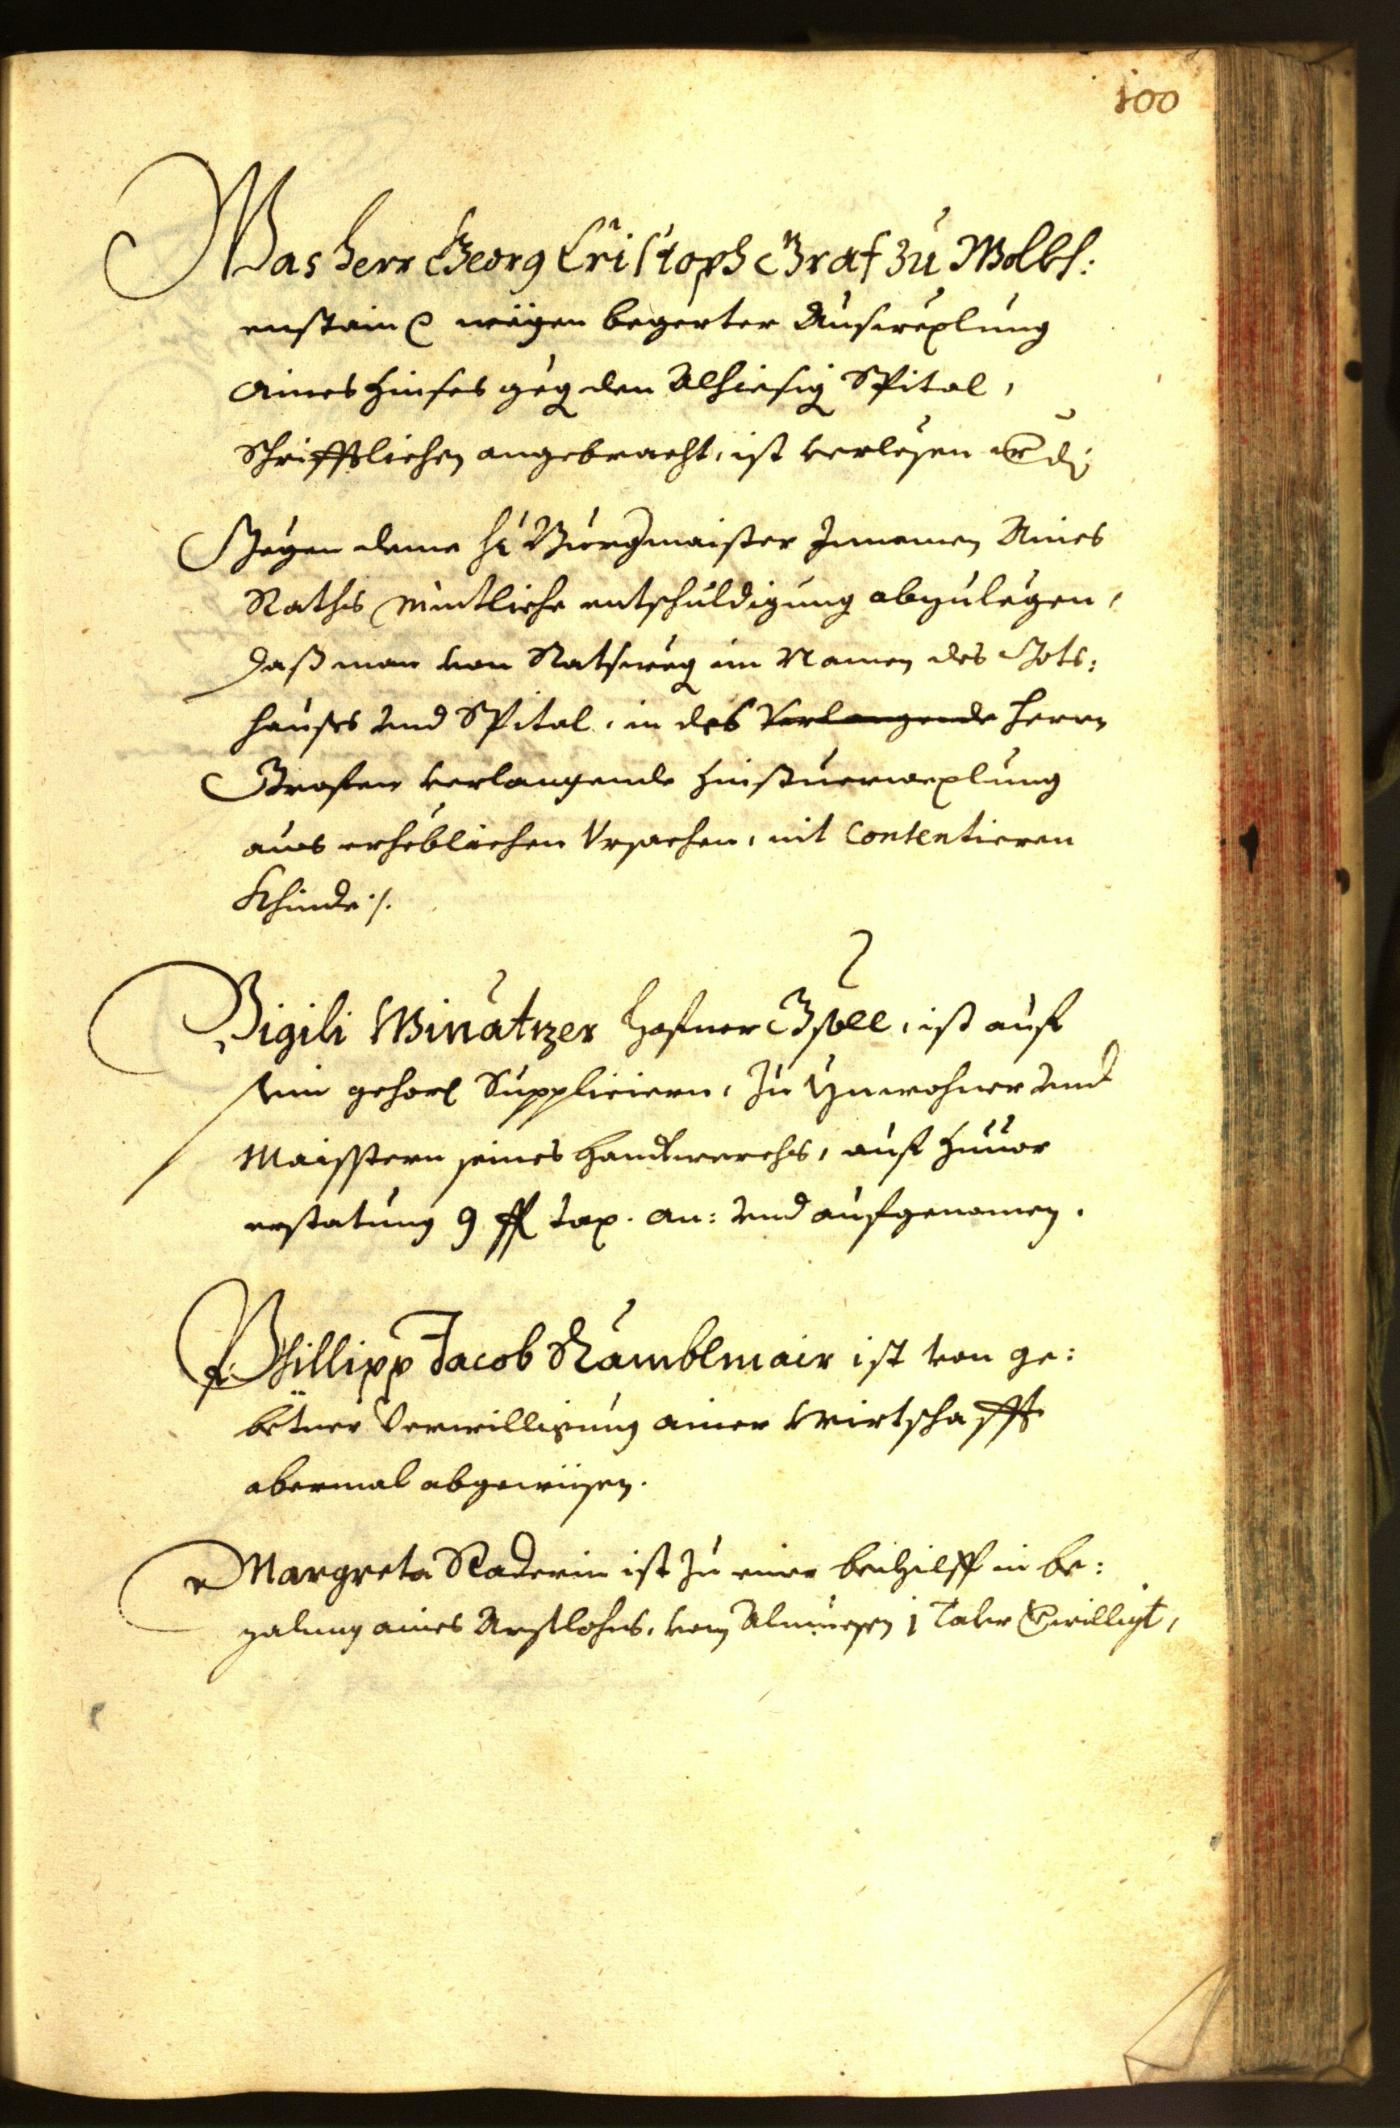 100
Was herr Georg Cristoph Graf zu Wolkh:
enstain wegen begerter Auswexlung
aines Zinses geg den Alhiesig Spital,
Schrifftlichen angebracht, ist verlesen
Gegen deme hr Burgmaister Innamen Aines
Raths mintliche entschuldigung abzulegen,
daß man von Ratsweg im Namen des Gots:
hauses und Spital, in des Verlangende Herrn
Grafen verlangende Zinsverwexlung
aus erheblichen Ursachen, nit Contentieren
khinde ./.
Vigili Winatzer Hafner Gsoll, ist auf
sein gehorl Suppliciern, zu Ynwohner und
Maisstern seines Handtwerchs, auf Zuuor
erstatung 9 fl tax. an: und aufgenomen.
Phillipp Jacob Kamblmair ist von ge:
betner Verwilligung ainer Wirtschafft
abermal abgewisen.
Margreta Raderin ist zu einer beihilff in be:
zalung aines Arstlohns, vom Almuesen 1 Taler verwilligt,